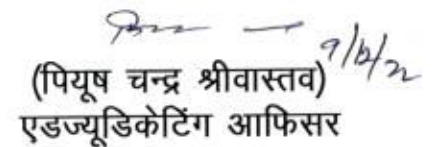 (पियूष चन्द्र श्रीवास्तव)
एडज्यूडिकेटिंग आफिसर